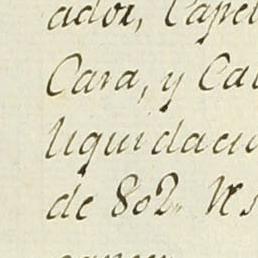 ador, Capel
Cara, y Ca
liquidaci
de 802. Rs